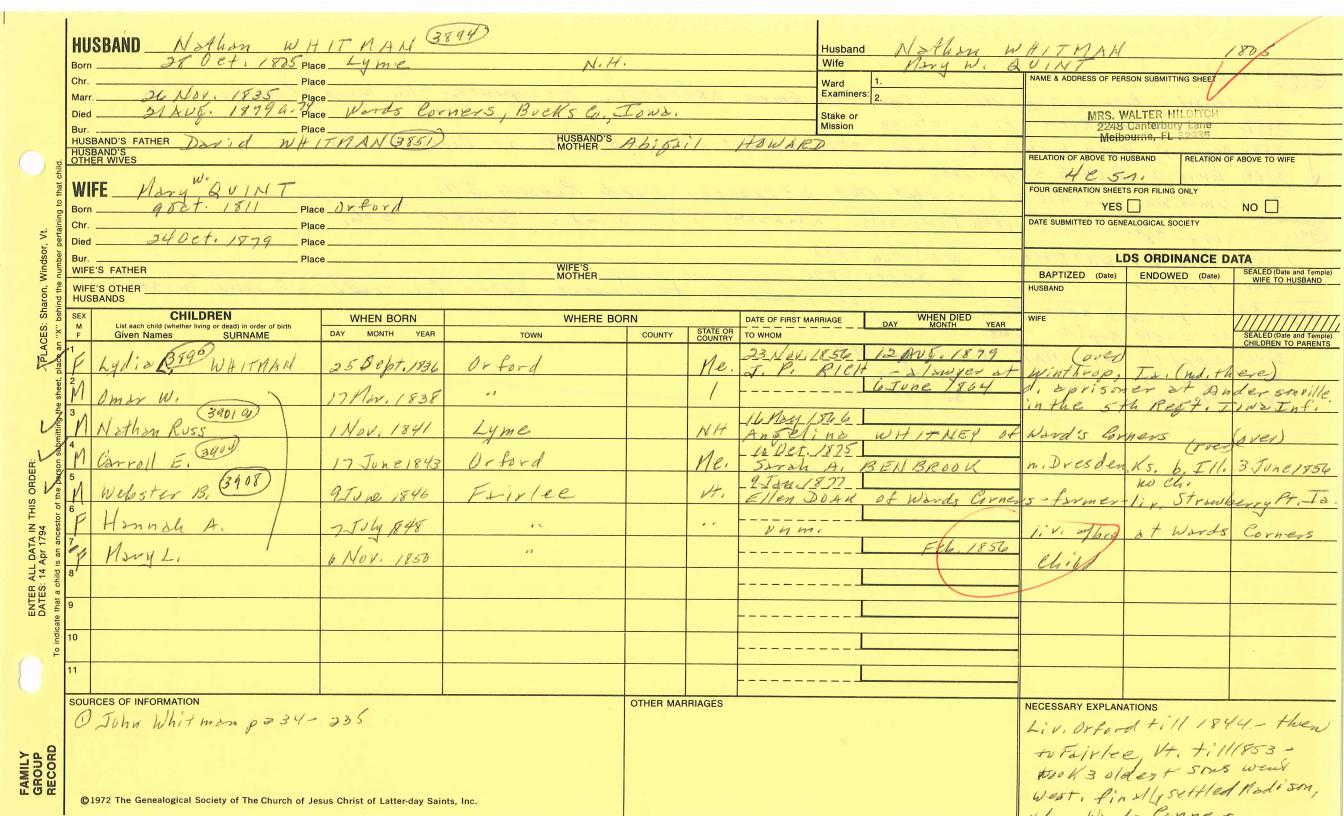 HUSBAND Nathan WHITMAN (3894)
Born 28 Oct. 1805 Place Lyme N.H.
Chr. Place
Marr. 26 Nov. 1835 Place
Died 21 Aug. 1879 a. 74 Place Wards Corners, Bucks Co, Iowa.
Bur. Place
HUSBAND'S FATHER David WHITMAN (3851) HUSBAND'S MOTHER Abigail HOWARD
HUSBAND'S OTHER WIVES
Husband Nathan WHITMAN 1805
Wife Mary W. QUINT
Ward Examiners: 1.
2.
Stake or Mission
NAME & ADDRESS OF PERSON SUBMITTING SHEET
MRS. WALTER HILDITCH
2248 Canterbury Lane
Melbourne, FL
RELATION OF ABOVE TO HUSBAND RELATION OF ABOVE TO WIFE
4c 5r.
FOUR GENERATION SHEETS FOR FILING ONLY
YES NO
DATE SUBMITTED TO GENEALOGICAL SOCIETY
WIFE Mary W. QUINT
Born 9 Oct. 1811 Place Orford
Chr. Place
Died 24 Oct. 1879 Place
Bur. Place
WIFE'S FATHER WIFE'S MOTHER
WIFE'S OTHER HUSBANDS
LDS ORDINANCE DATA
BAPTIZED (Date) ENDOWED (Date) SEALED (Date and Temple) WIFE TO HUSBAND
HUSBAND
WIFE
SEALED (Date and Temple) CHILDREN TO PARENTS
SEX M F
CHILDREN
List each child (whether living or dead) in order of birth
Given Names SURNAME
WHEN BORN
DAY MONTH YEAR
WHERE BORN
TOWN COUNTY STATE OR COUNTRY
DATE OF FIRST MARRIAGE
TO WHOM
WHEN DIED
DAY MONTH YEAR
1 F Lydia (3900) WHITMAN 25 Sept. 1836 Orford Me. 23 Nov. 1856 12 Aug. 1879 (over)
J. P. RICH - a lawyer at Winthrop, Ia. (md. there)
2 M Omar W. 17 Mar. 1838 " 1 6 June 1864 d. a prisoner at Andersonville
in the 5th Regt. Iowa Inf.
3 M Nathan Russ (3901a) 1 Nov. 1841 Lyme NH 16 May 1866
Angelina WHITNEY of Ward's Corners (over)
4 M Carroll E. (3904) 17 June 1843 Orford Me. 10 Oct. 1875 (over)
Sarah A. BENBROOK m. Dresden, Ks. b. Ill. 3 June 1856
5 M Webster B. (3908) 9 June 1846 Fairlee Vt. 9 Jan. 1877 no ch.
Ellen DOAK of Wards Corners - farmer - liv. Strawberry Pt. Ia.
6 F Hannah A. 7 July 1848 " " unm. liv. at Wards Corners
7 F Mary L. 6 Nov. 1850 " Feb. 1856 child
8
9
10
11
SOURCES OF INFORMATION
① John Whitman p 234 - 235
OTHER MARRIAGES
NECESSARY EXPLANATIONS
Liv. Orford till 1844 - then
to Fairlee, Vt. till 1853 -
took 3 oldest sons went
west. finally settled Madison,
©1972 The Genealogical Society of The Church of Jesus Christ of Latter-day Saints, Inc.
FAMILY GROUP RECORD
ENTER ALL DATA IN THIS ORDER:
DATES: 14 Apr 1794
PLACES: Sharon, Windsor, Vt.
To indicate that a child is an ancestor of the person submitting the sheet, place an "X" behind the number pertaining to that child.